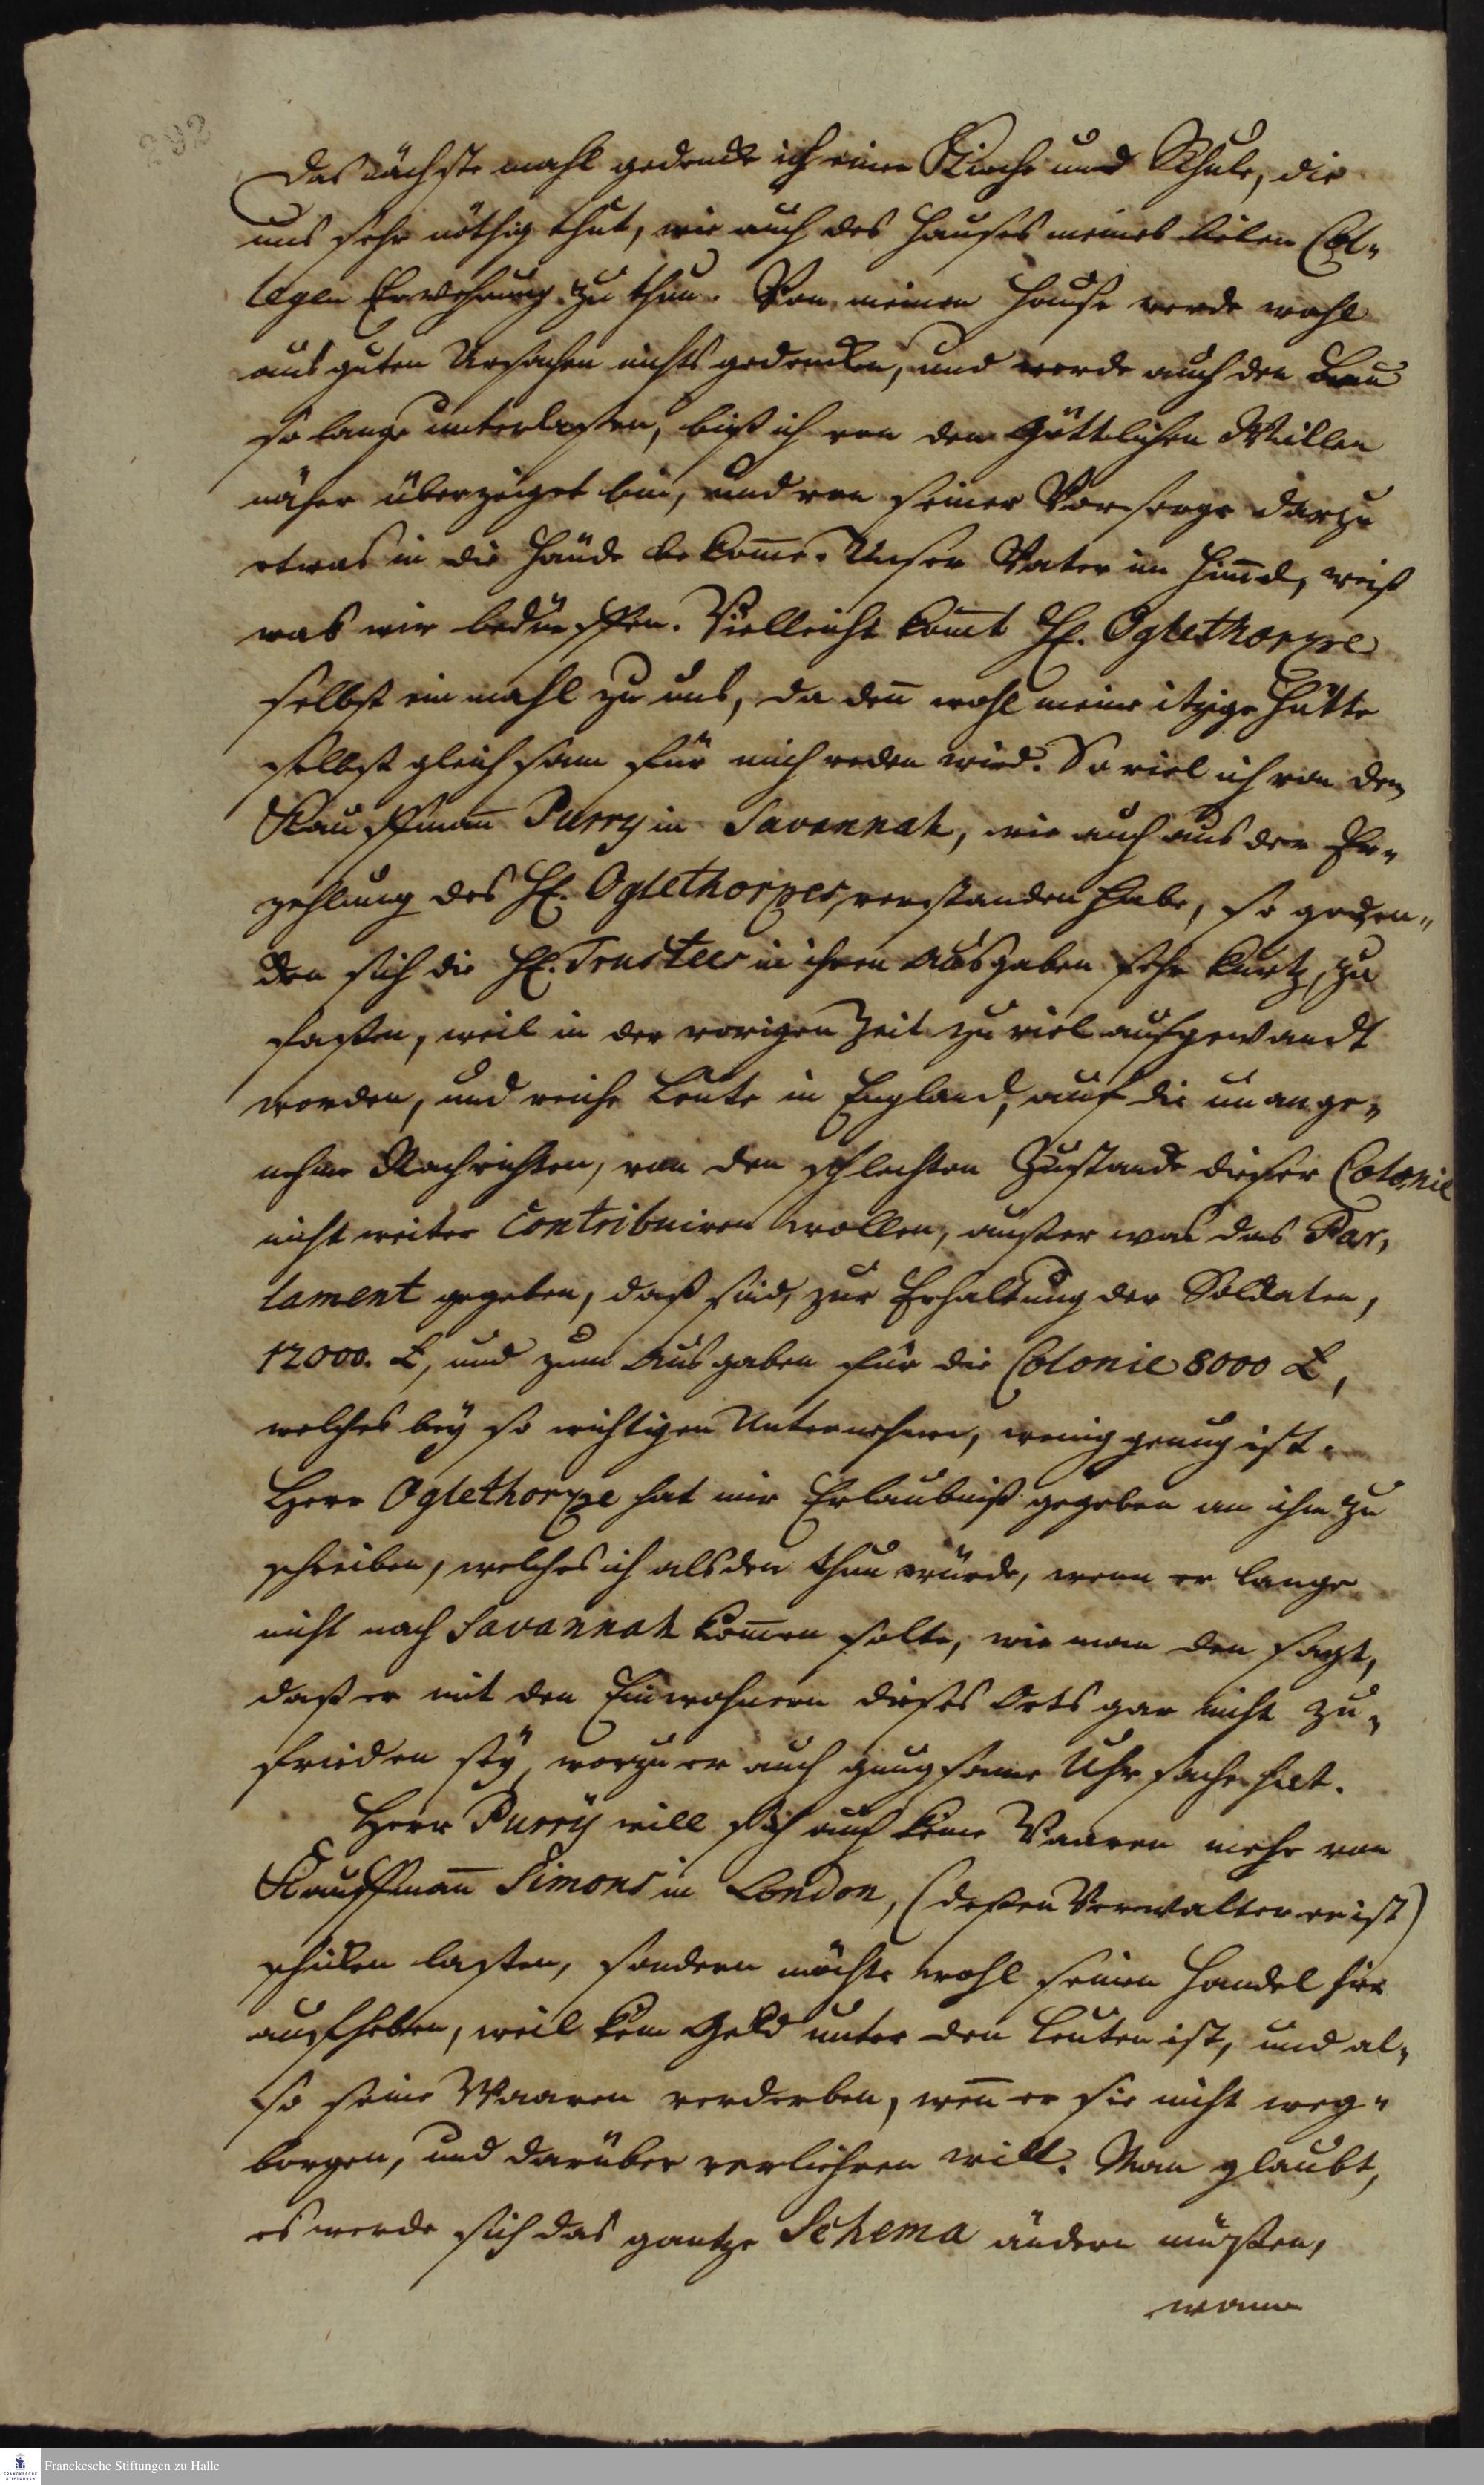 292
Das nächste mahl gedencke ich einer Kirche und Schule, die
uns sehr nöthig thut, wie auch des Hauses meines lieben Col-
legen Erwehnung zu thun. Von meinem Hause werde wohl
aus guten Ursachen nichts gedencken, und werde auch den Bau
so lange unterlaßen, biß ich von dem Göttlichen Willen
näher überzeiget bin, und von seiner Vorsorge darzu
etwas in die Hände bekom̅e. Unser Vater im Him̅el, weiß
was wir bedürffen. Vielleicht kom̅t H. Oglethorpe
selbst einmahl zu uns, da den̅ wohl meine itzige Hütte
selbst gleichsam für mich reden wird. So viel ich von dem
Kauffman̅ Purry in Savannah, wie auch aus der Er-
zehlung des H. Oglethorpes, verstanden habe, so geden-
cken sich die H. Trustees in ihren Ausgaben sehr kurtz, zu
faßen, weil in der vorigen Zeit zu viel aufgewandt
worden, und reiche Leute in England, auf die unange-
nehme Nachrichten, von dem schlechten Zustande dieser Colonie
nicht weiter contribuiren wollen, außer was das Par-
lament gegeben, daß sind, zur Erhaltung der Soldaten,
12000. £, und zum Ausgaben für die Colonie 8000 £,
welches bey so wichtigen Unternehmen, wenig genug ist.
Herr Oglethorpe hat mir Erlaubniß gegeben an ihm zu
schreiben, welches ich alsden thun würde, wenn er lange
nicht nach Savannah kom̅en solte, wie man den sagt,
daß er mit den Einwohnern dieses Orts gar nicht zu-
frieden sey, worzu er auch gnugsame Uhrsache hat.
Herr Purry will sich auch keine Waaren mehr von
Kauffman̅ Simons in London, (deßen Verwalter er ist)
schicken laßen, sondern möchte wohl seinen Handel hier
aufheben, weil kein Geld unter den Leuten ist, und al-
so seine Waaren verderben, wen̅ er sie nicht weg-
borgen, und darüber verliehren will. Man glaubt,
es werde sich das gantze Schema ändern müßen,
wann
Franckesche Stiftungen zu Halle
FRANCKESCHE
STIFTUNGEN